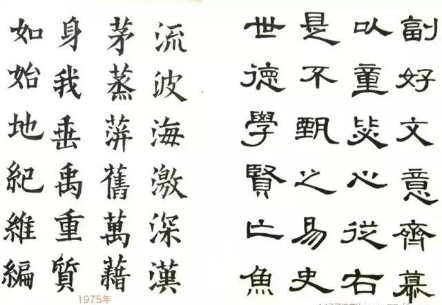 副好文意齊幕
以童毖心從右
是不甄之易史
世德學賢亡魚
流波海激深漢
茅蒸蓱舊萬藉
身我垂禹重質
如始地紀維編
1975年